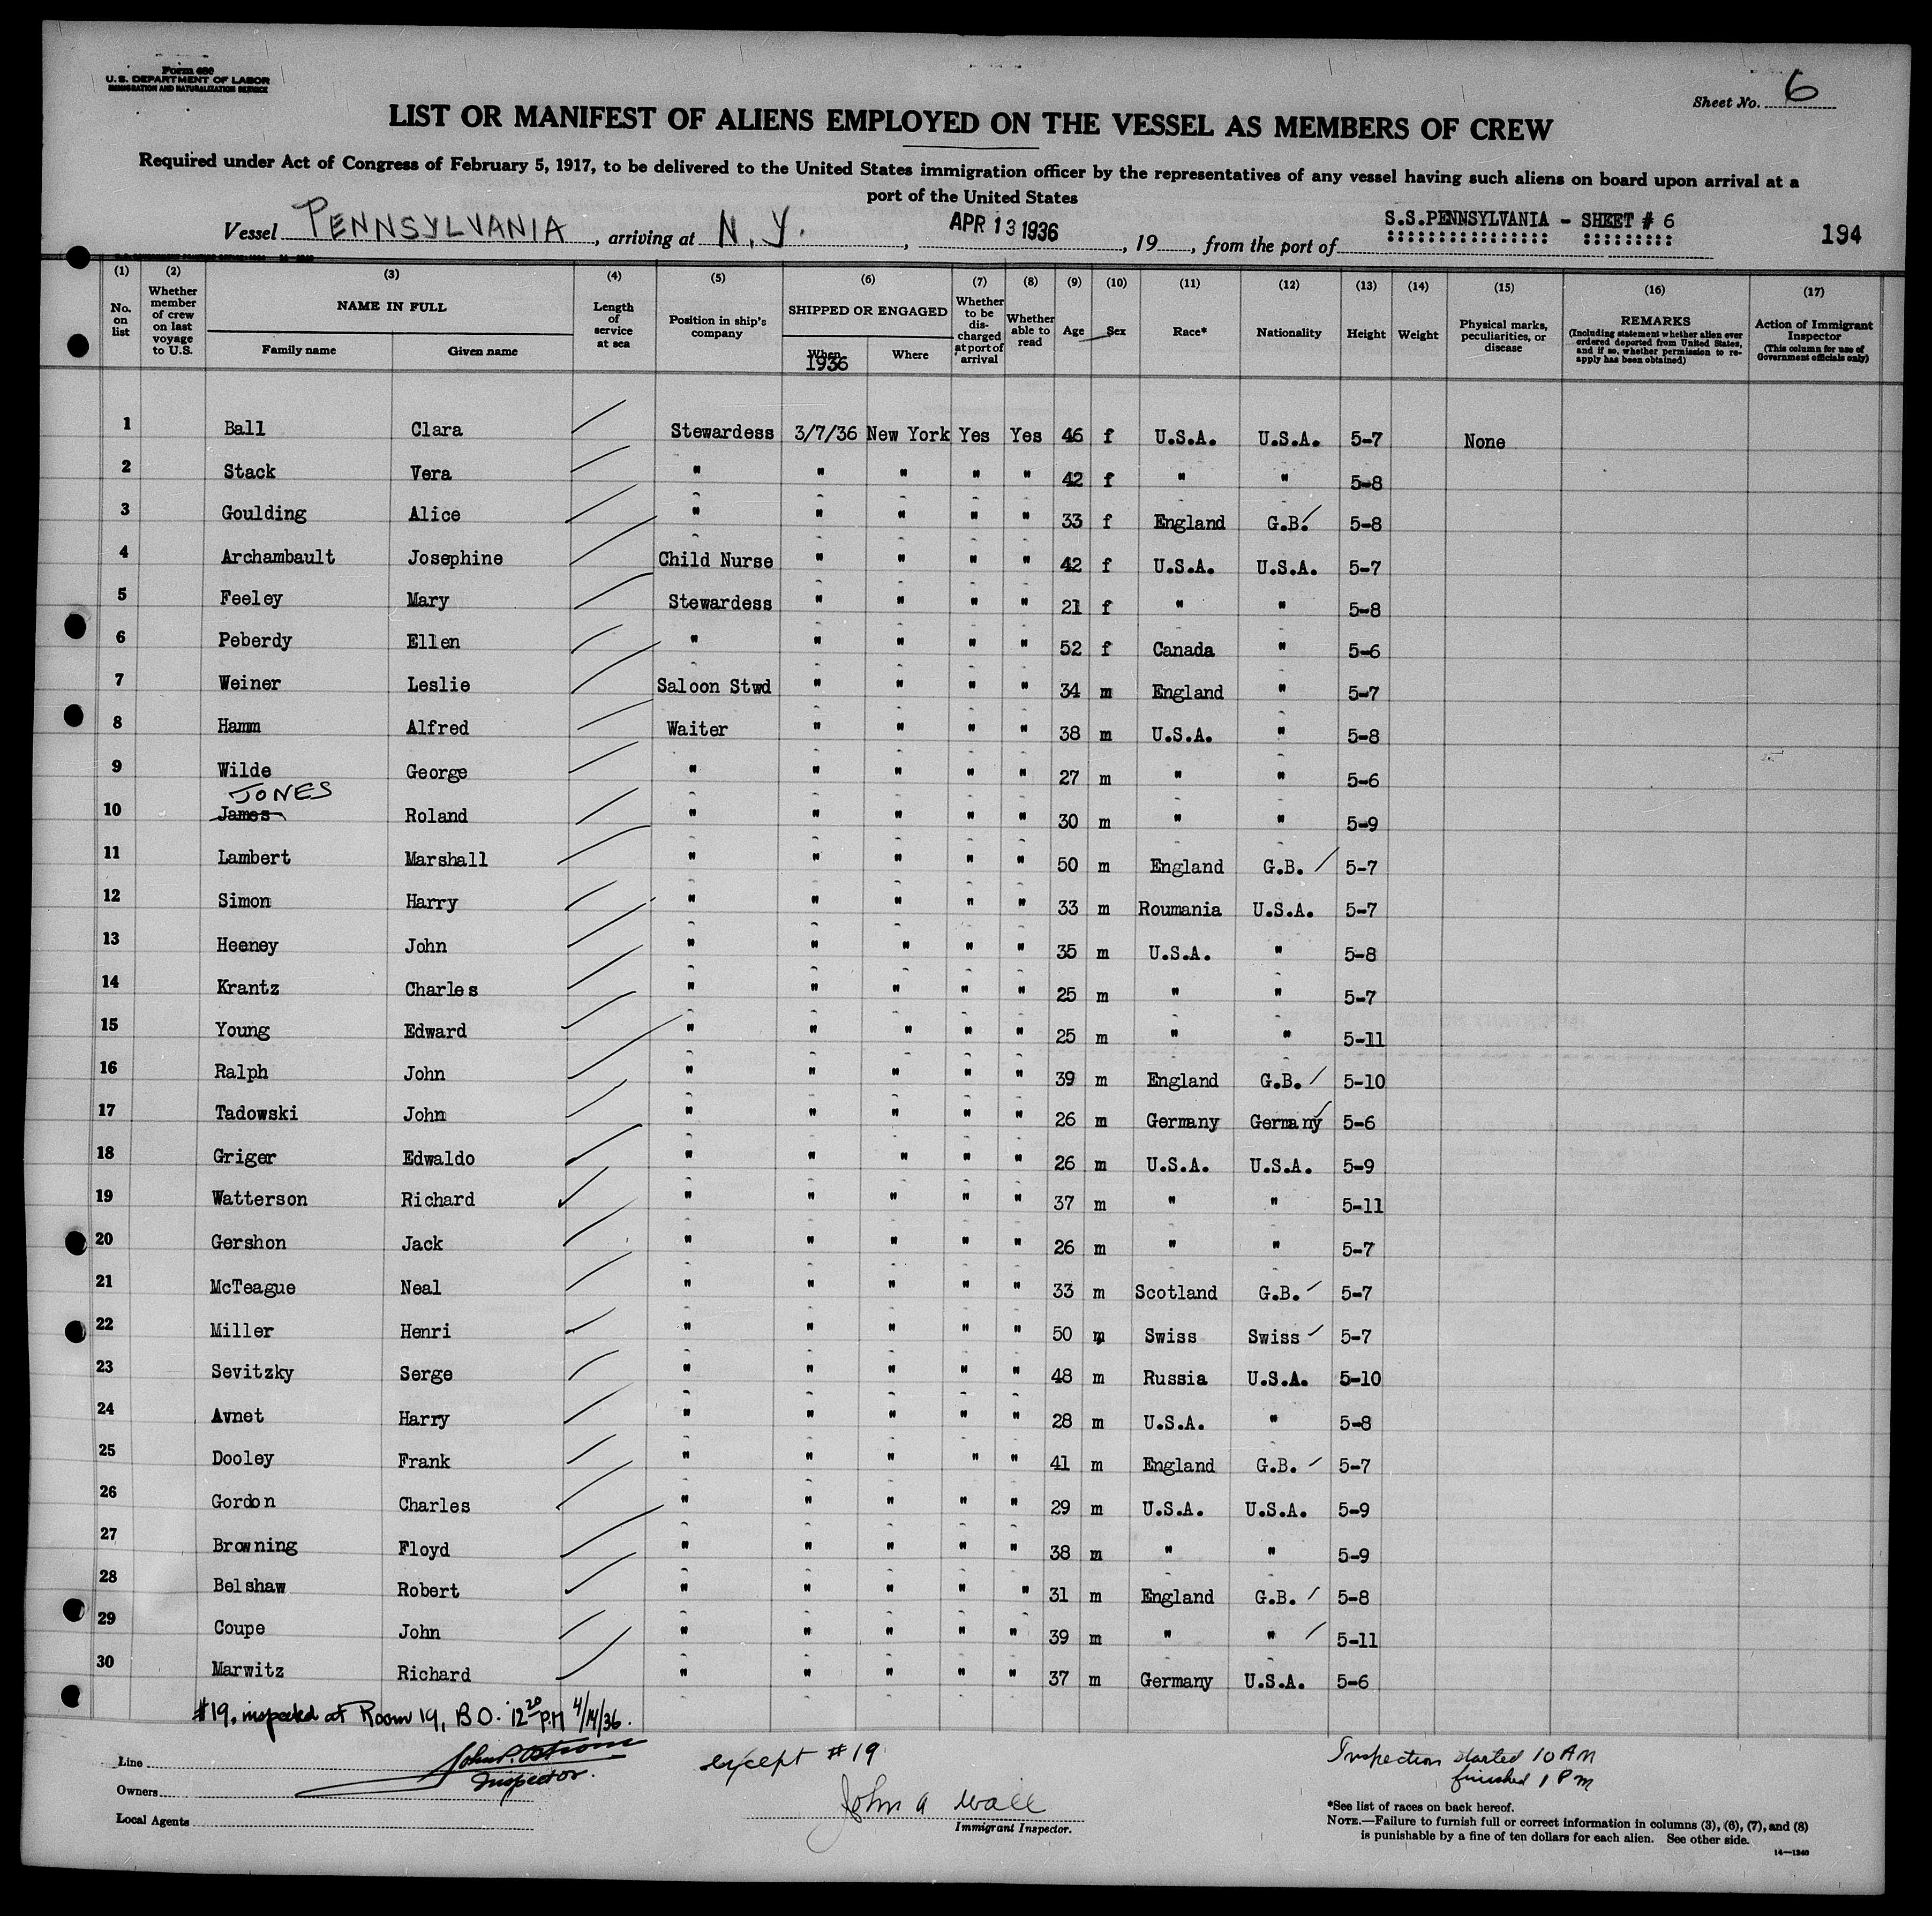 Form 680
U.S. DEPARTMENT OF LABOR
IMMIGRATION AND NATURALIZATION SERVICE
Sheet No. 6
LIST OR MANIFEST OF ALIENS EMPLOYED ON THE VESSEL AS MEMBERS OF CREW
Required under Act of Congress of February 5, 1917, to be delivered to the United States immigration officer by the representatives of any vessel having such aliens on board upon arrival at a
port of the United States
Vessel PENNSYLVANIA, arriving at N.Y., APR 13 1936, 19, from the port of S.S.PENNSYLVANIA - SHEET # 6 194
(1) (2) (3) (4) (5) (6) (7) (8) (9) (10) (11) (12) (13) (14) (15) (16) (17)
No. on list
Whether member of crew on last voyage to U.S.
NAME IN FULL
Family name Given name
Length of service at sea
Position in ship's company
SHIPPED OR ENGAGED
When 1936 Where
Whether to be discharged at port of arrival
Whether able to read
Age Sex Race* Nationality Height Weight
Physical marks, peculiarities, or disease
REMARKS
(Including statement whether alien ever ordered deported from United States, and if so, whether permission to re-apply has been obtained)
Action of Immigrant Inspector
(This column for use of Government officials only)
1 Ball Clara Stewardess 3/7/36 New York Yes Yes 46 f U.S.A. U.S.A. 5-7 None
2 Stack Vera " " " " " 42 f " " 5-8
3 Goulding Alice " " " " " 33 f England G.B. 5-8
4 Archambault Josephine Child Nurse " " " " 42 f U.S.A. U.S.A. 5-7
5 Feeley Mary Stewardess " " " " 21 f " " 5-8
6 Peberdy Ellen " " " " " 52 f Canada " 5-6
7 Weiner Leslie Saloon Stwd " " " " 34 m England " 5-7
8 Hamm Alfred Waiter " " " " 38 m U.S.A. " 5-8
9 Wilde George " " " " " 27 m " " 5-6
JONES
10 James Roland " " " " " 30 m " " 5-9
11 Lambert Marshall " " " " " 50 m England G.B. 5-7
12 Simon Harry " " " " " 33 m Roumania U.S.A. 5-7
13 Heeney John " " " " " 35 m U.S.A. " 5-8
14 Krantz Charles " " " " " 25 m " " 5-7
15 Young Edward " " " " " 25 m " " 5-11
16 Ralph John " " " " " 39 m England G.B. 5-10
17 Tadowski John " " " " " 26 m Germany Germany 5-6
18 Griger Edwaldo " " " " " 26 m U.S.A. U.S.A. 5-9
19 Watterson Richard " " " " " 37 m " " 5-11
20 Gershon Jack " " " " " 26 m " " 5-7
21 McTeague Neal " " " " " 33 m Scotland G.B. 5-7
22 Miller Henri " " " " " 50 m Swiss Swiss 5-7
23 Sevitzky Serge " " " " " 48 m Russia U.S.A. 5-10
24 Avnet Harry " " " " " 28 m U.S.A. " 5-8
25 Dooley Frank " " " " " 41 m England G.B. 5-7
26 Gordon Charles " " " " " 29 m U.S.A. U.S.A. 5-9
27 Browning Floyd " " " " " 38 m " " 5-9
28 Belshaw Robert " " " " " 31 m England G.B. 5-8
29 Coupe John " " " " " 39 m " " 5-11
30 Marwitz Richard " " " " " 37 m Germany U.S.A. 5-6
#19, inspected at Room 19, B.O. 12 20 P.M 4/14/36.
Line
Inspector.
Owners
Local Agents
except #19
John A Wall
Immigrant Inspector.
Inspection started 10 AM
finished 1 PM
*See list of races on back hereof.
NOTE.—Failure to furnish full or correct information in columns (3), (6), (7), and (8)
is punishable by a fine of ten dollars for each alien. See other side.
14—1240